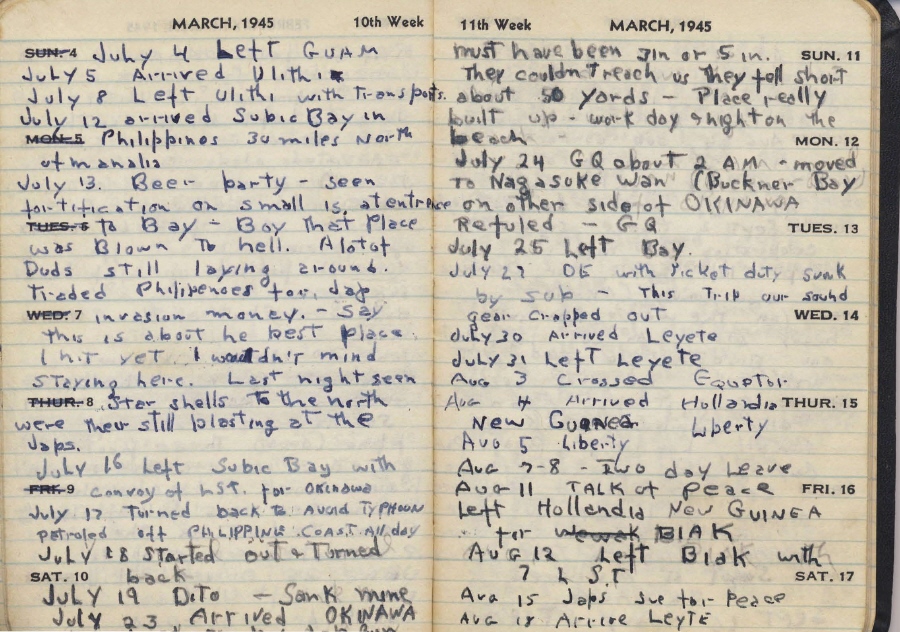 MARCH, 1945 10th Week
SUN. 4 July 4 Left GUAM
July 5 Arrived Ulithi
July 8 Left Ulithi with Transports.
July 12 arrived Subic Bay in
MON. 5 Philippines 30 miles North
of manalia
July 13. Beer party - seen
fortification on small is. at entrence
TUES. 6 to Bay - Boy that Place
was Blown To hell. A lot of
Duds still laying around.
Traded Philipenoes for Jap
WED. 7 invasion money. - Say
this is about he best place
I hit yet. I wouldn't mind
staying here. Last night seen
THUR. 8 Star shells to the north
were they still blasting at the
Japs.
July 16 Left Subic Bay with
FRI. 9 convoy of LST. for Okinawa
July 17 Turned back to Avoid TYPHOON
patroled off PHILIPPINE COAST All day
July 18 Started out & Turned
SAT. 10 back
July 19 Dito - Sank mine
July 23 Arrived OKINAWA
11th Week MARCH, 1945
must have been 3in or 5 in. SUN. 11
They couldn't reach us they fell short
about 50 yards - Place really
built up - work day & night on the
beach MON. 12
July 24 GQ about 2 AM - moved
to Nagasuke Wan (Buckner Bay
on other side of OKINAWA
Refuled - GQ TUES. 13
July 25 Left Bay.
July 27 DE with Picket duty sunk
by sub - This Trip our sound
gear crapped out WED. 14
July 30 Arrived Leyete
July 31 Left Leyete
Aug 3 Crossed Equator
Aug 4 Arrived Hollandia THUR. 15
New Guinea Liberty
Aug 5 Liberty
Aug 7-8 - Two day Leave
Aug 11 TALK of peace FRI. 16
Left Hollandia New GUINEA
for Wewak BIAK
Aug 12 Left BIAK with
7 LST SAT. 17
Aug 15 Japs sue for Peace
Aug 18 Arrive Leyte